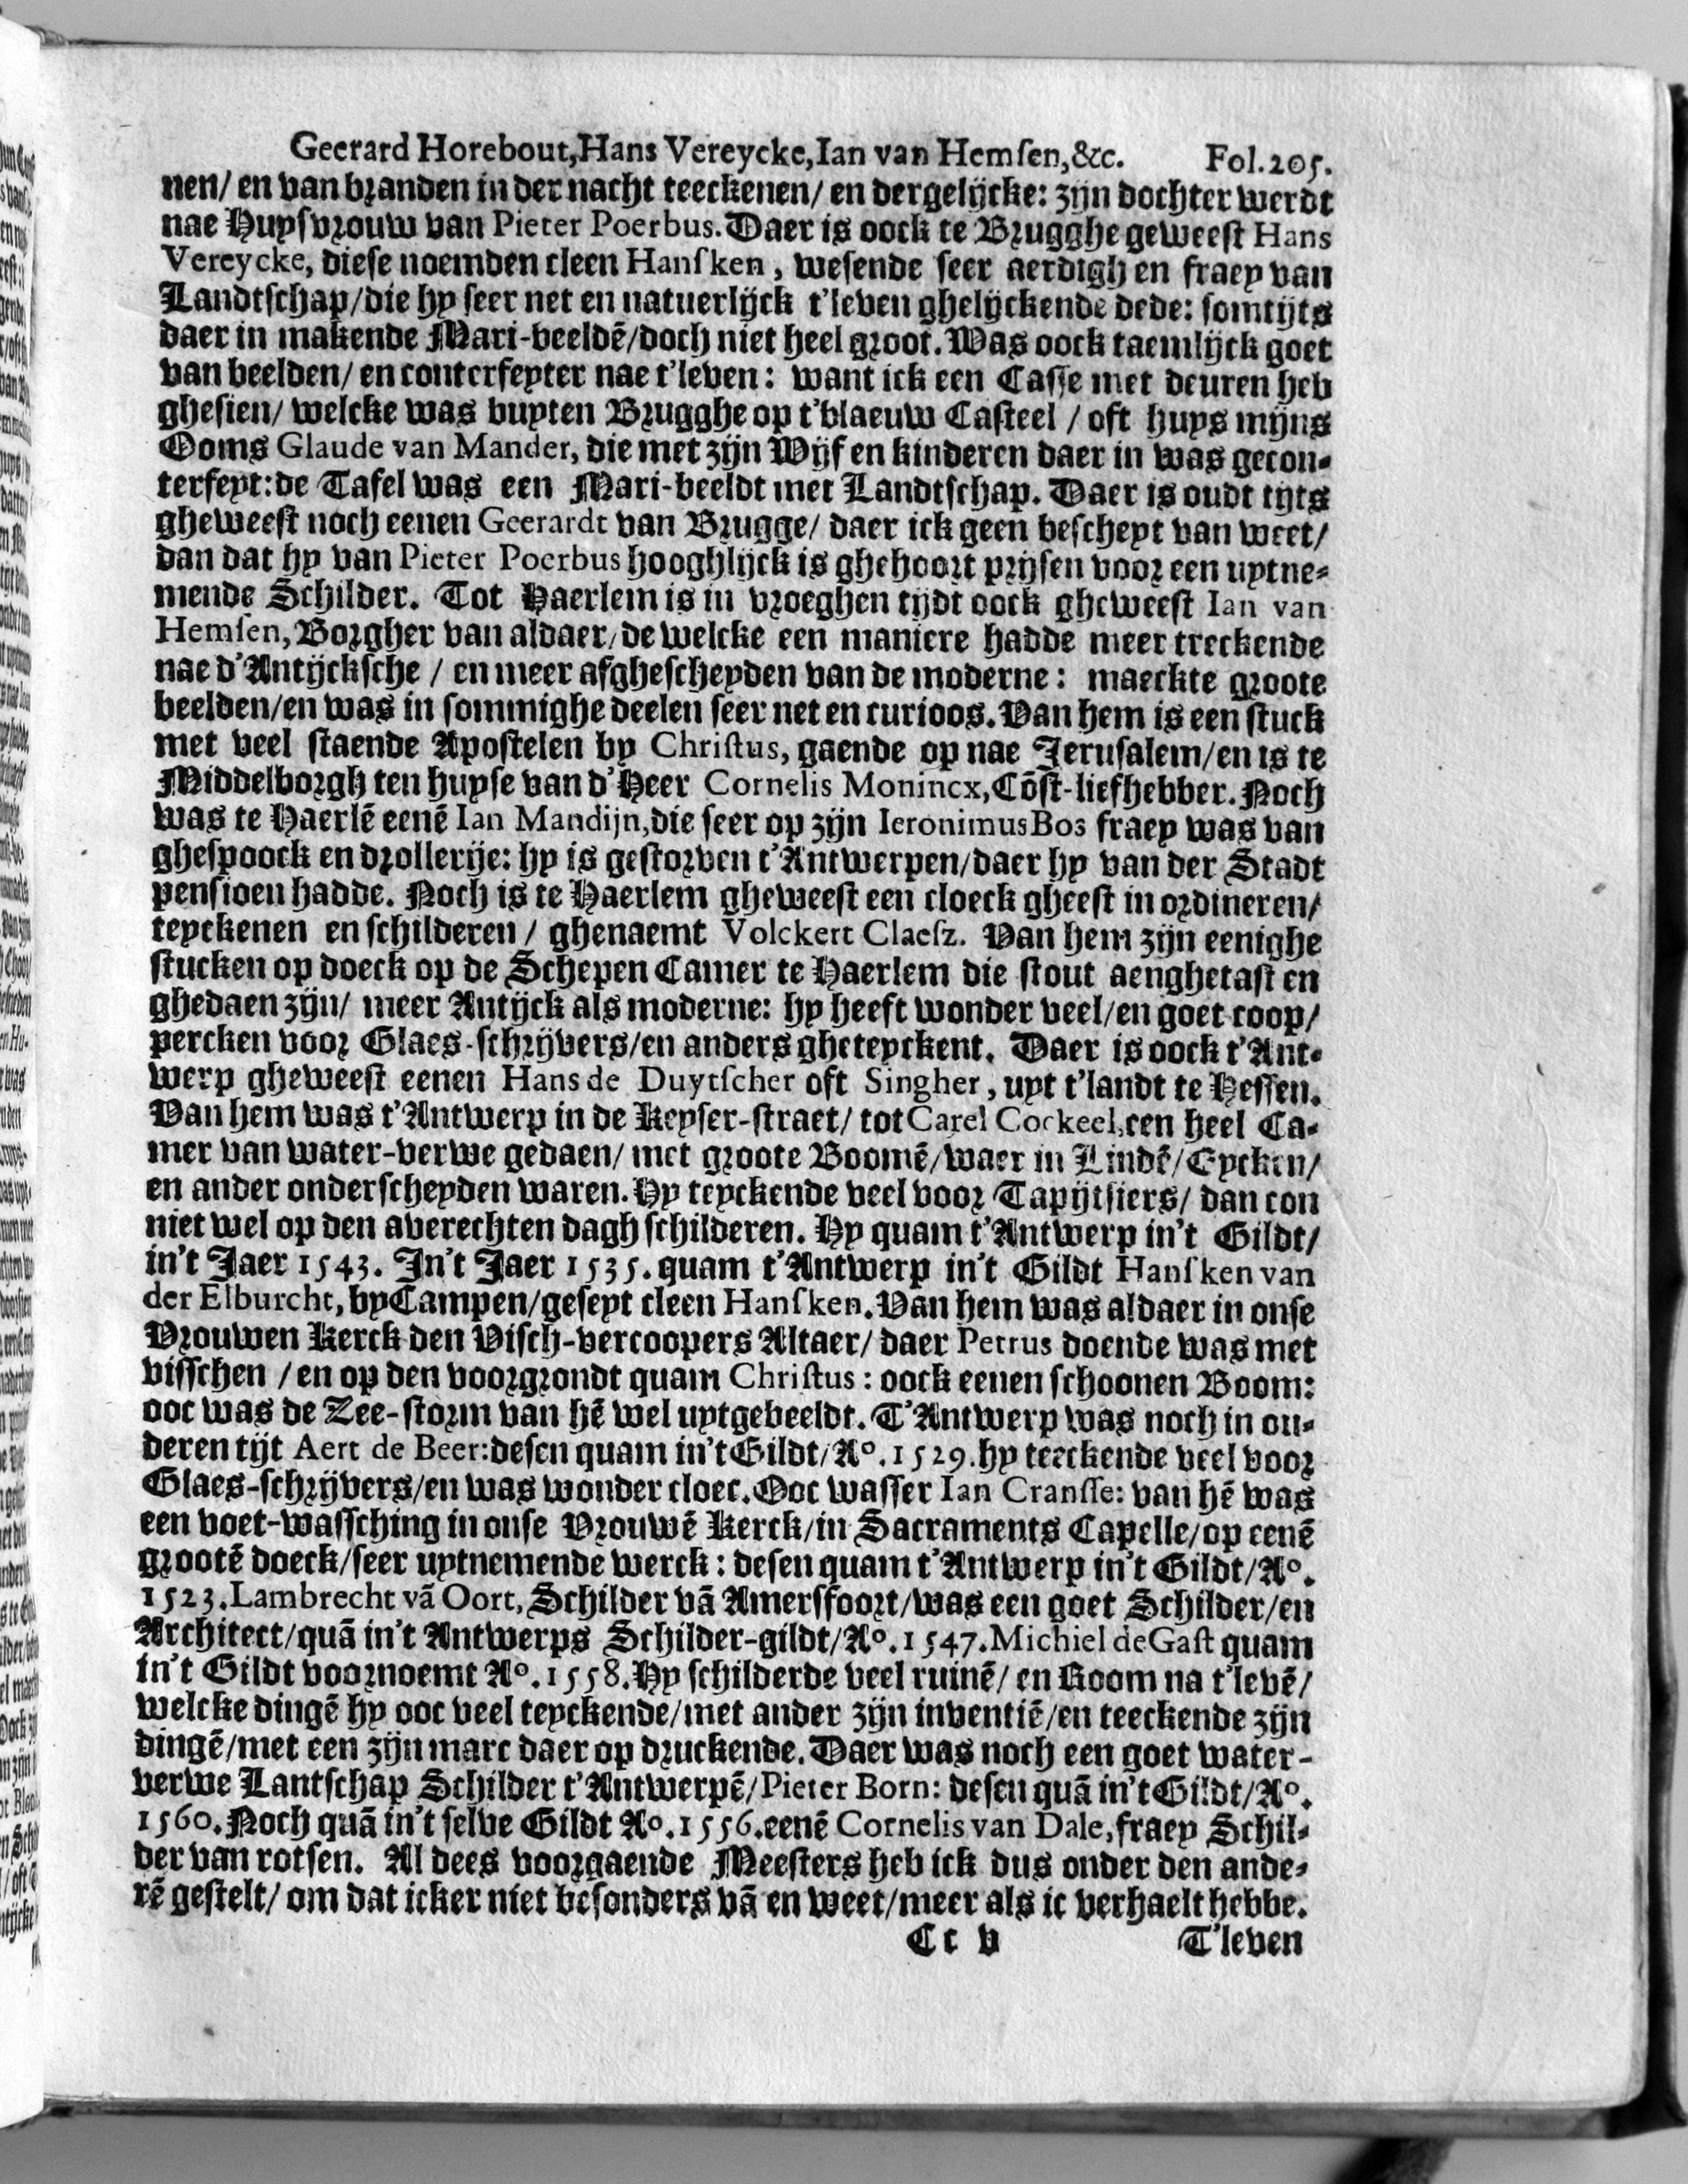 Geerard Horebout, Hans Vereycke, Ian van Hemſen, &c. Fol. 205.
nen/ en van branden in der nacht teeckenen/ en dergelijcke: zijn dochter werdt
nae Huyſvrouw van Pieter Poerbus. Daer is oock te Brugghe geweeſt Hans
Vereycke, dieſe noemden cleen Hanſken, weſende ſeer aerdigh en fraey van
Landtſchap/ die hy ſeer net en natuerlijck t'leven ghelijckende dede: ſomtijts
daer in makende Mari-beeldē/ doch niet heel groot. Was oock taemlijck goet
van beelden/ en conterfeyter nae t'leven: want ick een Caſſe met deuren heb
gheſien/ welcke was buyten Brugghe op t'blaeuw Caſteel / oft huys mijns
Ooms Glaude van Mander, die met zijn Wijf en kinderen daer in was gecon-
terfeyt: de Tafel was een Mari-beeldt met Landtſchap. Daer is oudt tijts
gheweeſt noch eenen Geerardt van Brugge/ daer ick geen beſcheyt van weet/
dan dat hy van Pieter Poerbus hooghlijck is ghehoort prijſen voor een uytne-
mende Schilder. Tot Haerlem is in vroeghen tijdt oock gheweeſt Ian van
Hemſen, Borgher van aldaer/ de welcke een maniere hadde meer treckende
nae d'Antijckſche / en meer afgheſcheyden van de moderne: maeckte groote
beelden/ en was in ſommighe deelen ſeer net en curioos. Van hem is een ſtuck
met veel ſtaende Apoſtelen by Chriſtus, gaende op nae Jeruſalem/ en is te
Middelborgh ten huyſe van d'Heer Cornelis Monincx, Cōſt-liefhebber. Noch
was te Haerlē eenē Ian Mandijn, die ſeer op zijn Ieronimus Bos fraey was van
gheſpoock en drollerije: hy is geſtorven t'Antwerpen/ daer hy van der Stadt
penſioen hadde. Noch is te Haerlem gheweeſt een cloeck gheeſt in ordineren/
teyckenen en ſchilderen / ghenaemt Volckert Claeſz. Van hem zijn eenighe
ſtucken op doeck op de Schepen Camer te Haerlem die ſtout aenghetaſt en
ghedaen zijn/ meer Antijck als moderne: hy heeft wonder veel/ en goet coop/
percken voor Glaes-ſchrijvers/ en anders gheteyckent. Daer is oock t'Ant-
werp gheweeſt eenen Hans de Duytſcher oft Singher, uyt t'landt te Heſſen.
Van hem was t'Antwerp in de Keyſer-ſtraet/ tot Carel Cockeel, een heel Ca-
mer van water-verwe gedaen/ met groote Boomē/ waer in Lindē/ Eycken/
en ander onderſcheyden waren. Hy teyckende veel voor Tapijtſiers/ dan con
niet wel op den averechten dagh ſchilderen. Hy quam t'Antwerp in't Gildt/
in't Jaer 1543. In't Jaer 1535. quam t'Antwerp in't Gildt Hanſken van
der Elburcht, by Campen/ geſeyt cleen Hanſken. Van hem was aldaer in onſe
Vrouwen Kerck den Viſch-vercoopers Altaer/ daer Petrus doende was met
viſſchen / en op den voorgrondt quam Chriſtus: oock eenen ſchoonen Boom:
ooc was de Zee-ſtorm van hē wel uytgebeeldt. T'Antwerp was noch in ou-
deren tijt Aert de Beer: deſen quam in't Gildt/ Aº. 1529. hy teeckende veel voor
Glaes-ſchrijvers/ en was wonder cloec. Ooc waſſer Ian Cranſſe: van hē was
een voet-waſſching in onſe Vrouwē Kerck/ in Sacraments Capelle/ op eenē
grootē doeck/ ſeer uytnemende werck: deſen quam t'Antwerp in't Gildt/ Aº.
1523. Lambrecht vā Oort, Schilder vā Amersfoort/ was een goet Schilder/ en
Architect/ quā in't Antwerps Schilder-gildt/ Aº. 1547. Michiel de Gaſt quam
in't Gildt voornoemt Aº. 1558. Hy ſchilderde veel ruinē/ en Room na t'levē/
welcke dingē hy ooc veel teyckende/ met ander zijn inventiē/ en teeckende zijn
dingē/ met een zijn marc daer op druckende. Daer was noch een goet water-
verwe Lantſchap Schilder t'Antwerpē/ Pieter Born: deſen quā in't Gildt/ Aº.
1560. Noch quā in't ſelve Gildt Aº. 1556. eenē Cornelis van Dale, fraey Schil-
der van rotſen. Al dees voorgaende Meeſters heb ick dus onder den ande-
rē geſtelt/ om dat icker niet beſonders vā en weet/ meer als ic verhaelt hebbe.
Cc v T'leven